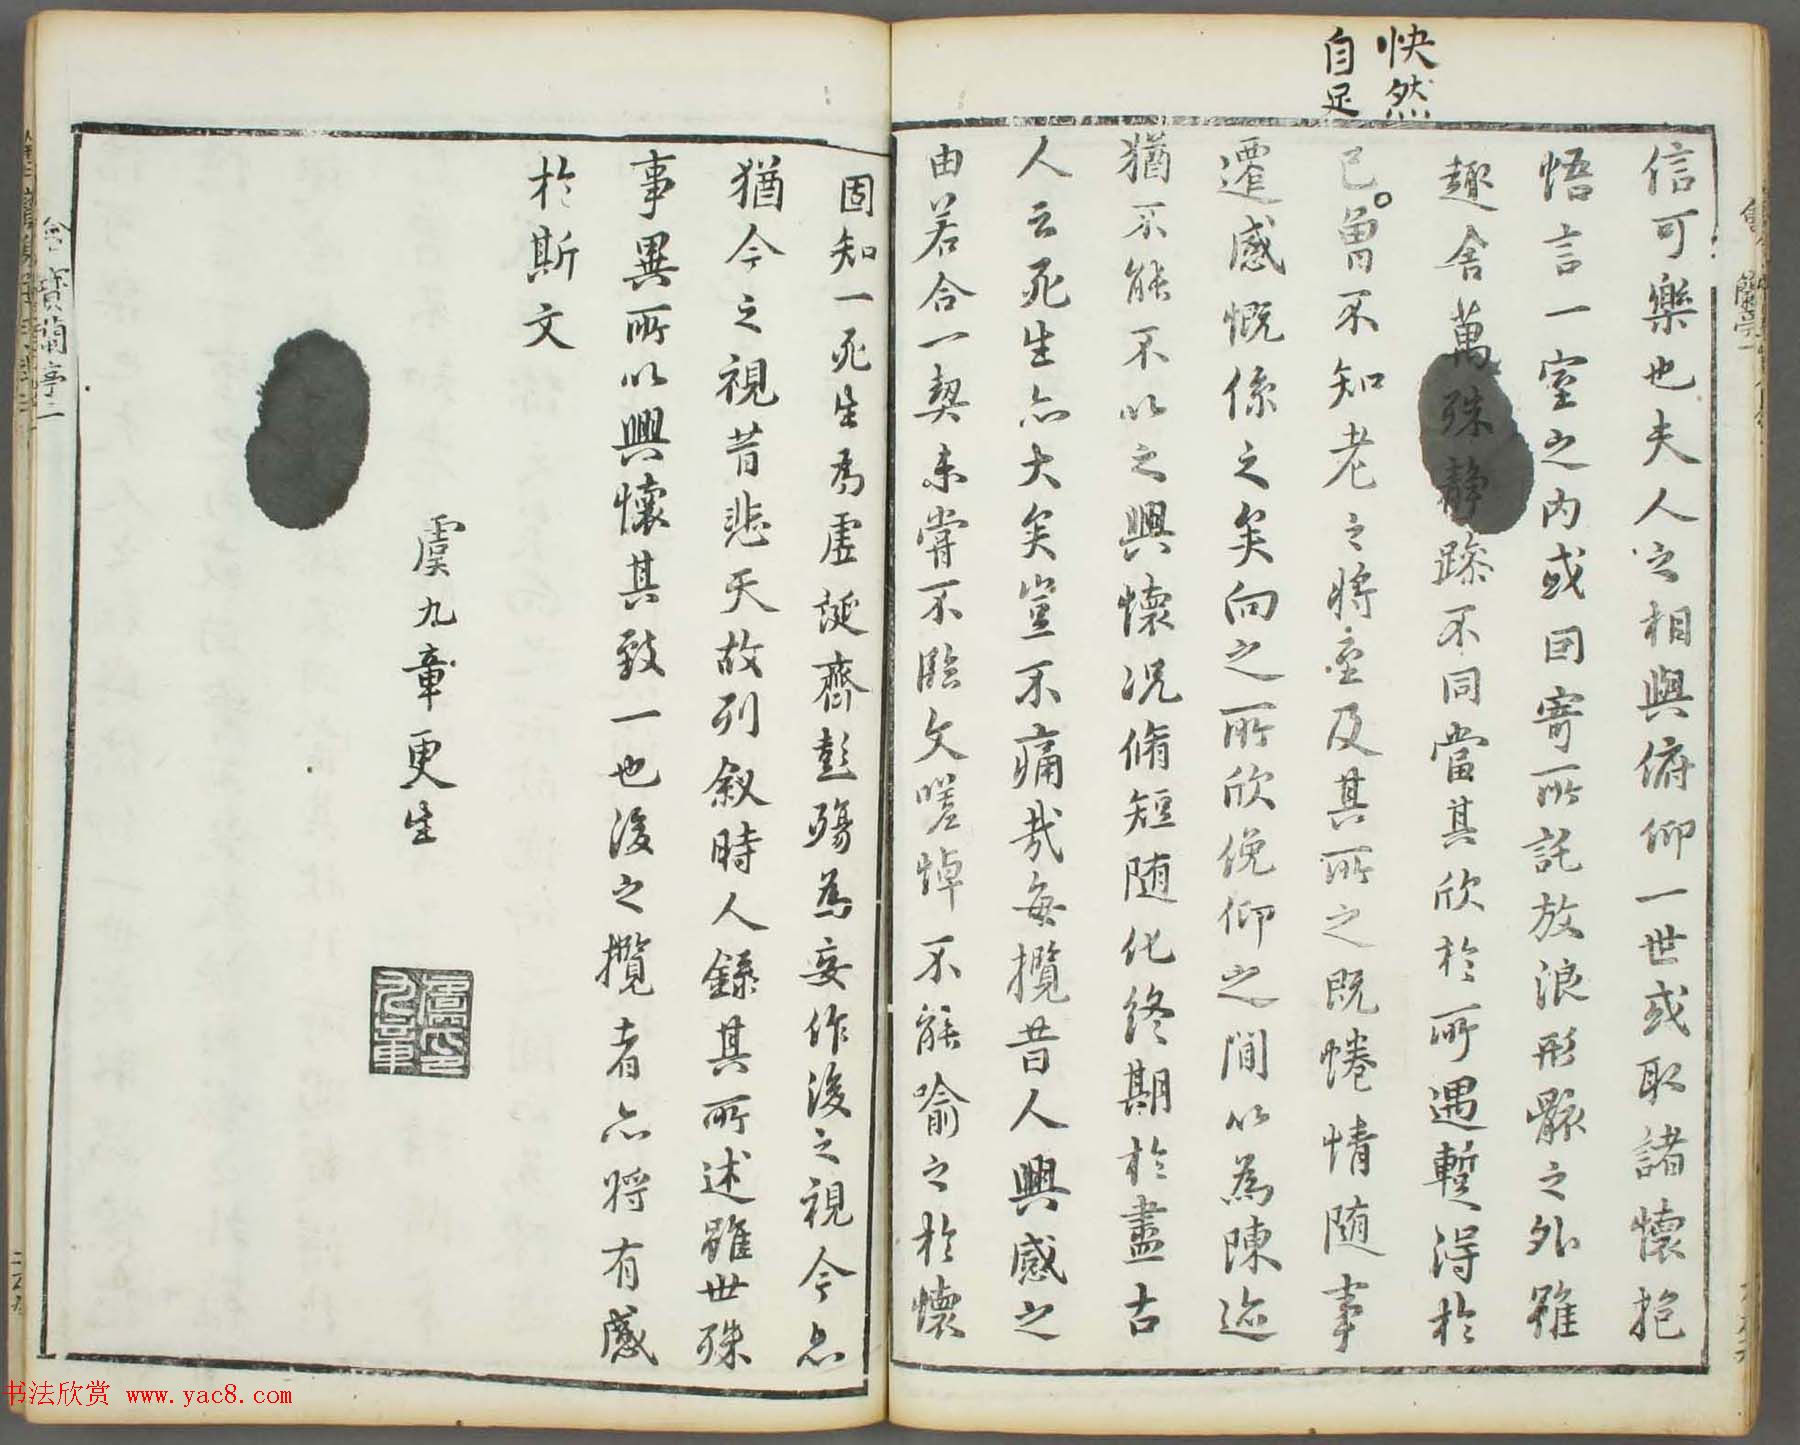 快然
自足
信可樂也夫人之相與俯仰一世或取諸懷抱
悟言一室之內或因寄所託放浪形骸之外雖
趣舍萬殊靜躁不同當其欣於所遇暫得於
己曾不知老之將至及其所之既惓情随事
遷感慨係之矣向之所欣俛仰之閒以為陳迹
猶不能不以之興懷況脩短随化終期於盡古
人云死生亦大矣豈不痛哉每攬昔人興感之
由若合一契未嘗不臨文嗟悼不能喻之於懷
固知一死生為虛誕齊彭殤為妄作後之視今亦
猶今之視昔悲夫故列叙時人錄其所述雖世殊
事異所以興懷其致一也後之攬者亦將有感
於斯文
虞九章更生
書法欣赏 www.yac8.com